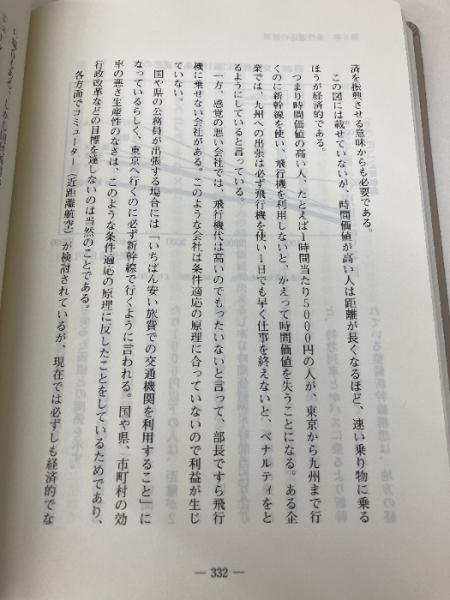 済を振興させる意味からも必要である。
この図には載せていないが、時間価値が高い人は距離が長くなるほど、速い乗り物に乗る
ほうが経済的である。
つまり時間価値の高い人、たとえば1時間当たり5000円の人が、東京から九州まで行
くのに新幹線を使い、飛行機を利用しないと、かえって時間価値を失うことになる。ある企
業では、九州への出張は必ず飛行機を使い1日でも早く仕事を終えないと、ペナルティをと
るようにしていると言っている。
一方、感覚の悪い会社では、飛行機代は高いのでもったいないと言って、部長ですら飛行
機に乗せない会社がある。このような会社は条件適応の原理に合っていないので利益が生じ
ていない。
国や県の公務員が出張する場合には「いちばん安い旅費での交通機関を利用すること」に
なっているらしく、東京へ行くのに必ず新幹線で行くように言われる。国や県、市町村の効
率の悪さ生産性のなさは、このような条件適応の原理に反したことをしているためであり、
行政改革などの目標を達しないのは当然のことである。
各方面でコミューター（近距離航空）が検討されているが、現在では必ずしも経済的でな
— 332 —